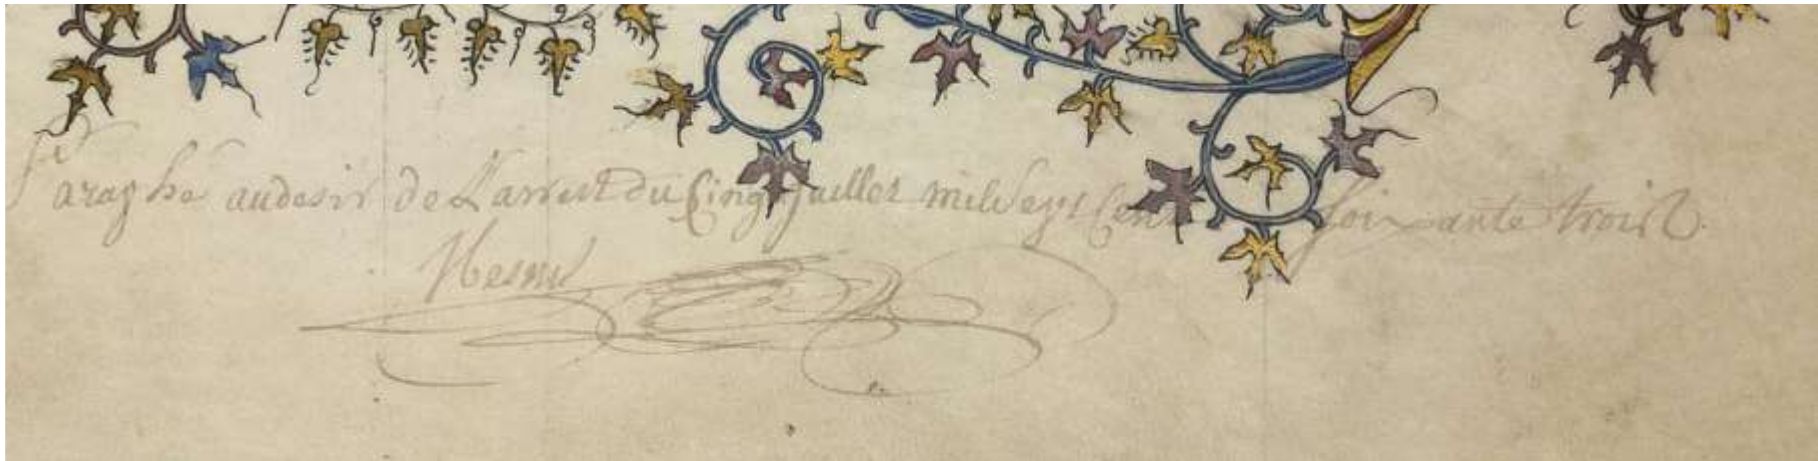 Paraphé au desir de L'arrest du Cinq juillet mil sept Cent soixante trois
Mesnil